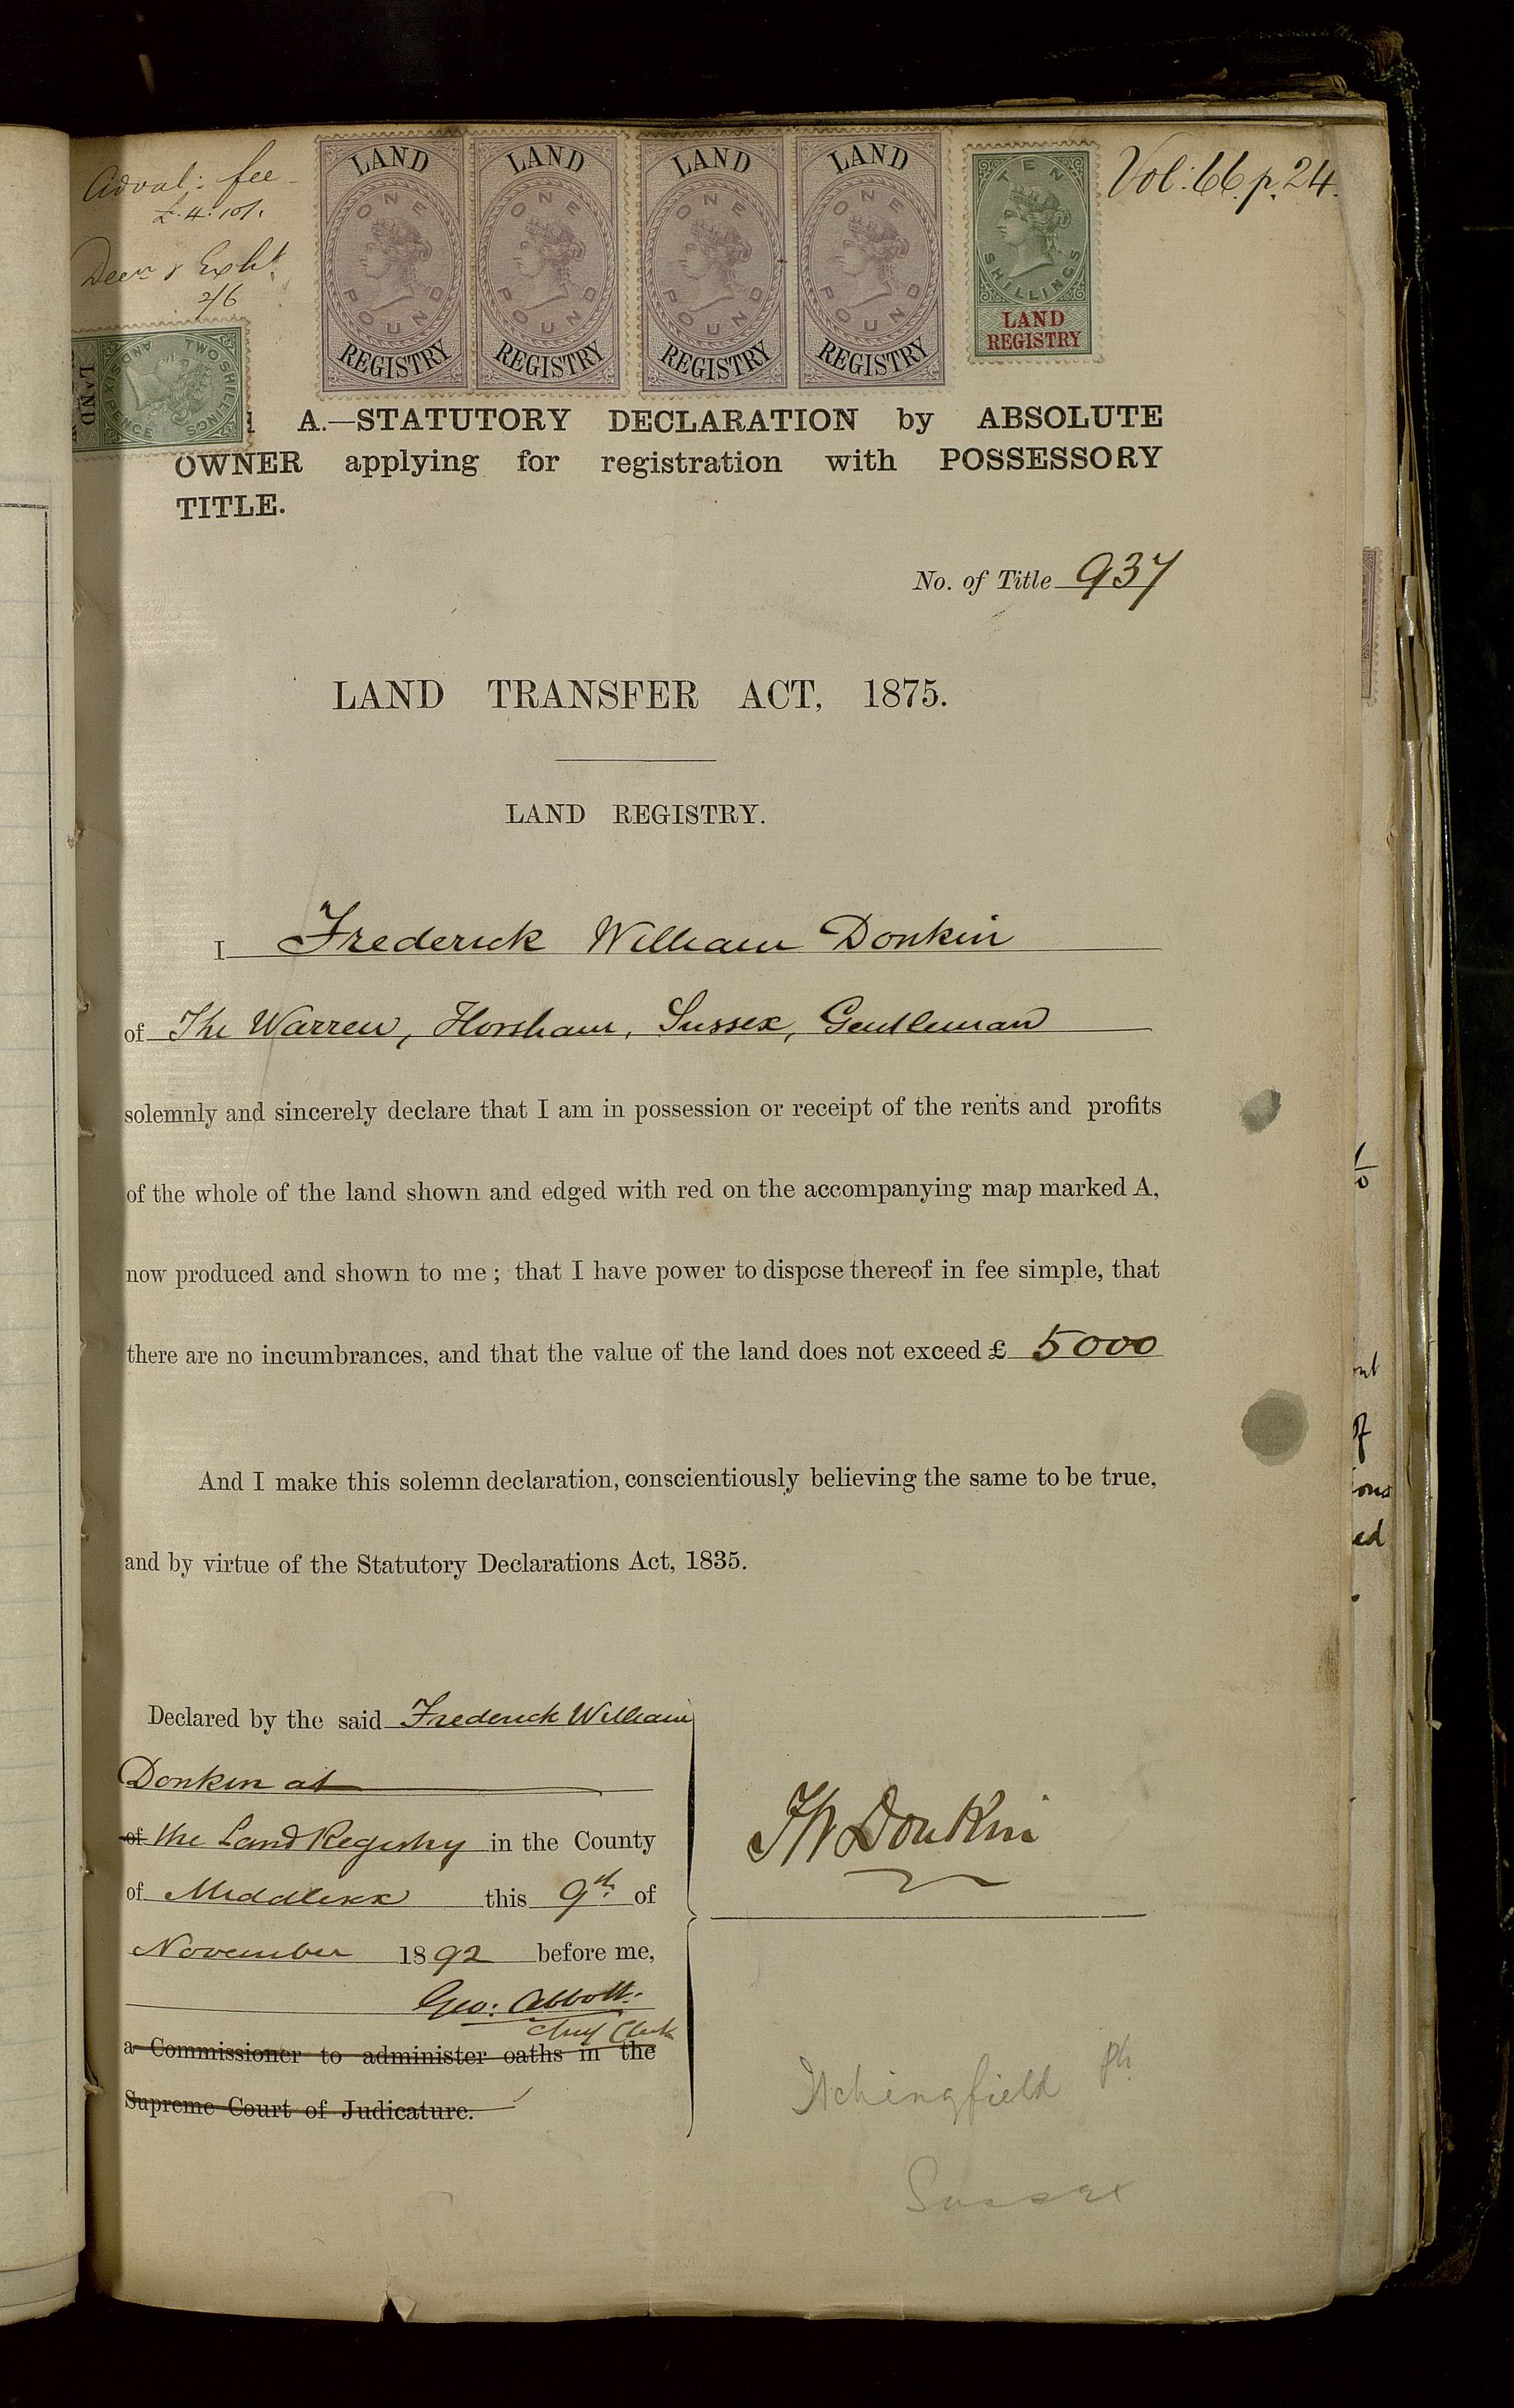 Adval: fee
£.4:10/.
Decn & Exht
2/6
LAND
ONE
POUND
REGISTRY
LAND
ONE
POUND
REGISTRY
LAND
ONE
POUND
REGISTRY
LAND
ONE
POUND
REGISTRY
TEN
SHILLINGS
LAND
REGISTRY
Vol: 66 p. 24.
LAND
TWO SHILLINGS
AND SIXPENCE
A.—STATUTORY DECLARATION by ABSOLUTE
OWNER applying for registration with POSSESSORY
TITLE.
No. of Title 937
LAND TRANSFER ACT, 1875.
LAND REGISTRY.
I Frederick William Donkin
of The Warren, Horsham, Sussex, Gentleman
solemnly and sincerely declare that I am in possession or receipt of the rents and profits
of the whole of the land shown and edged with red on the accompanying map marked A,
now produced and shown to me; that I have power to dispose thereof in fee simple, that
there are no incumbrances, and that the value of the land does not exceed £ 5000
And I make this solemn declaration, conscientiously believing the same to be true,
and by virtue of the Statutory Declarations Act, 1835.
Declared by the said Frederick William
Donkin at
of the Land Registry in the County
of Middlesex this 9th. of
November 1892 before me,
Geo: Abbott.
Chief Clerk
a Commissioner to administer oaths in the
Supreme Court of Judicature.
FW Donkin
Itchingfield Ph
Sussex